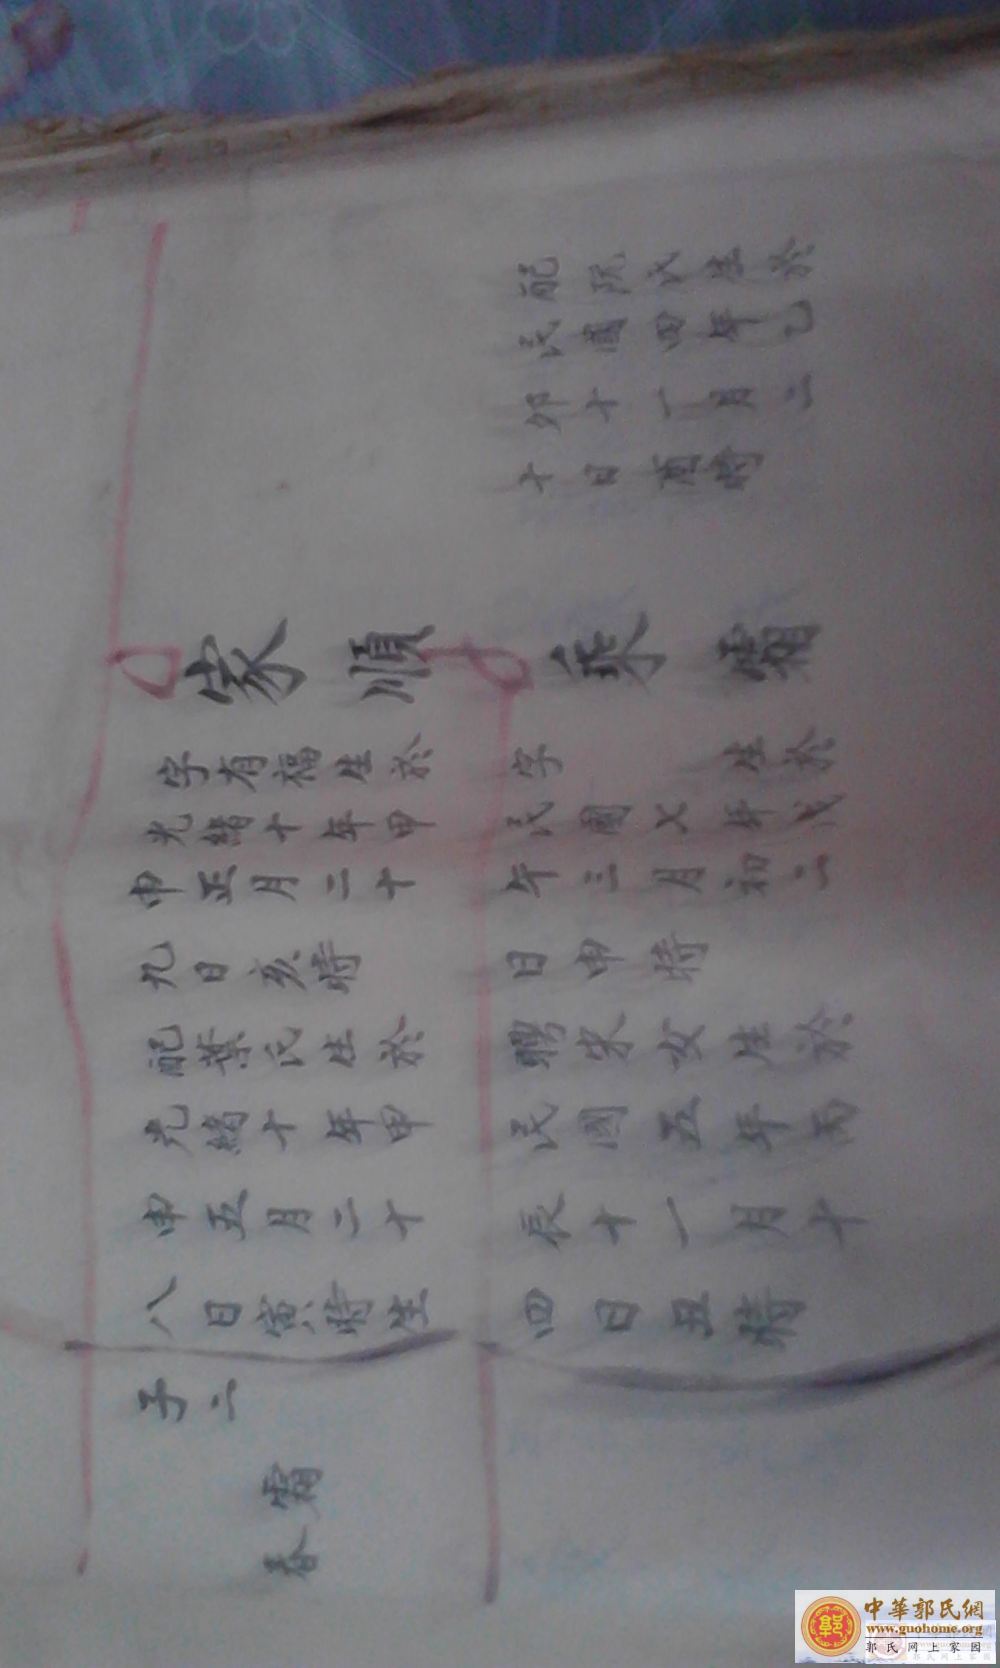 家順
字有福生於
光緒十年甲
申正月二十
九日亥時
配葉氏生於
光緒十年甲
申五月二十
八日寅時生
子二
霜
春
配阮氏生於
民國四年乙
卯十一月二
十日酉時
秉霜
字 生於
民國七年戊
午三月初二
日申時
聘宋女生於
民國五年丙
辰十一月十
四日丑時
郭
中華郭氏網
www.guohome.org
郭氏网上家园